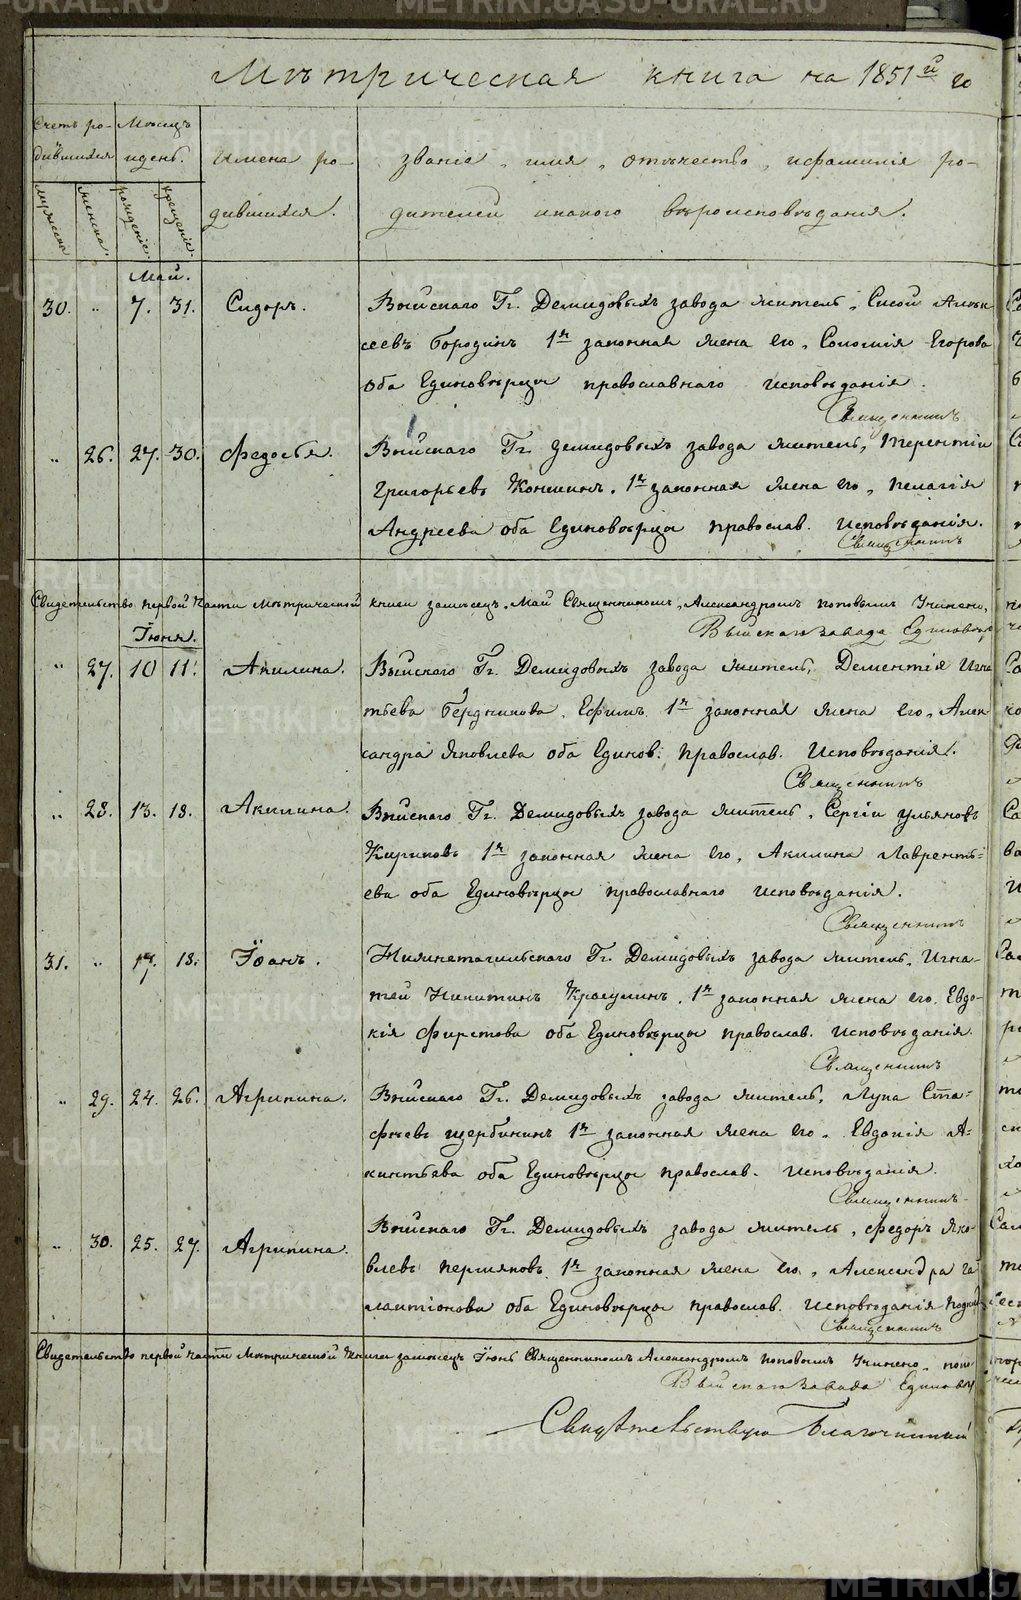 Метрическая книга на 1851й го
Счетъ ро-
дившихся
Мѣсяцъ
и день.
Имена ро-
дившихся.
званіе, имя, отечество, и фамилія ро-
дителей и какого вѣроисповѣданія.
мужеска
женска.
рожденіе.
крещеніе.
Май.
30. „ 7. 31. Сидоръ.
Выйскаго Гг. Демидовыхъ завода житель, Сысой Алек
сеевъ Бородинъ 1я законная жена его, Соломія Егорова
оба Единовѣрцы православнаго исповѣданія.
Священникъ
„ 26. 27. 30. Федосья.
Выйскаго Гг. Демидовыхъ завода житель, Терентіи
Григорьевъ Коншинъ, 1я законная жена его, Пелагія
Андреева оба Единовѣрцы православ. Исповѣданія.
Священникъ
Свидетельство первой части Метрической книги за мѣсяцъ Май Священникомъ Александромъ Поповымъ Учинено,
Выйскаго завода Единовѣр
Іюня.
„ 27. 10 11. Акилина.
Выйскаго Гг. Демидовыхъ завода житель, Дементія Игна
тьева Бердникова, Ефимъ 1я законная жена его, Алек
сандра Яковлева оба Единов. православ. Исповѣданія.
Священникъ
„ 28. 13. 18. Акилина.
Выйскаго Гг. Демидовыхъ завода житель, Сергіи Ульяновъ
Кириковъ 1я законная жена его, Акилина Лавренть-
ева оба Единовѣрцы православнаго исповѣданія.
Священникъ
31. „ 17. 18. Іоанъ.
Нижнетагильскаго Гг. Демидовыхъ завода житель, Игна-
тей Никитинъ Красулинъ, 1я законная жена его, Евдо-
кія Фирстова оба Единовѣрцы православ. исповѣданія.
Священникъ
„ 29. 24. 26. Агрипина.
Выйскаго Гг. Демидовыхъ завода житель, Лука Ста-
фѣевъ Щербининъ 1я законная жена его, Евдокія А-
кинтьева оба Единовѣрцы православ. Исповѣданія.
Священникъ
„ 30. 25. 27. Агрипина.
Выйскаго Гг. Демидовыхъ завода житель, Федоръ Яко-
влевъ Пермяковъ 1я законная жена его, Александра Га
лактіонова оба Единовѣрцы православ. Исповѣданія
Священникъ
Свидетельство первой части Метрической Книги за мѣсяцъ Іюнь Священникомъ Александромъ Поповымъ Учинено,
Выйскаго Завода Единовѣр
Свидѣтельствую Благочинный
METRIKI.GASU-URAL.RU